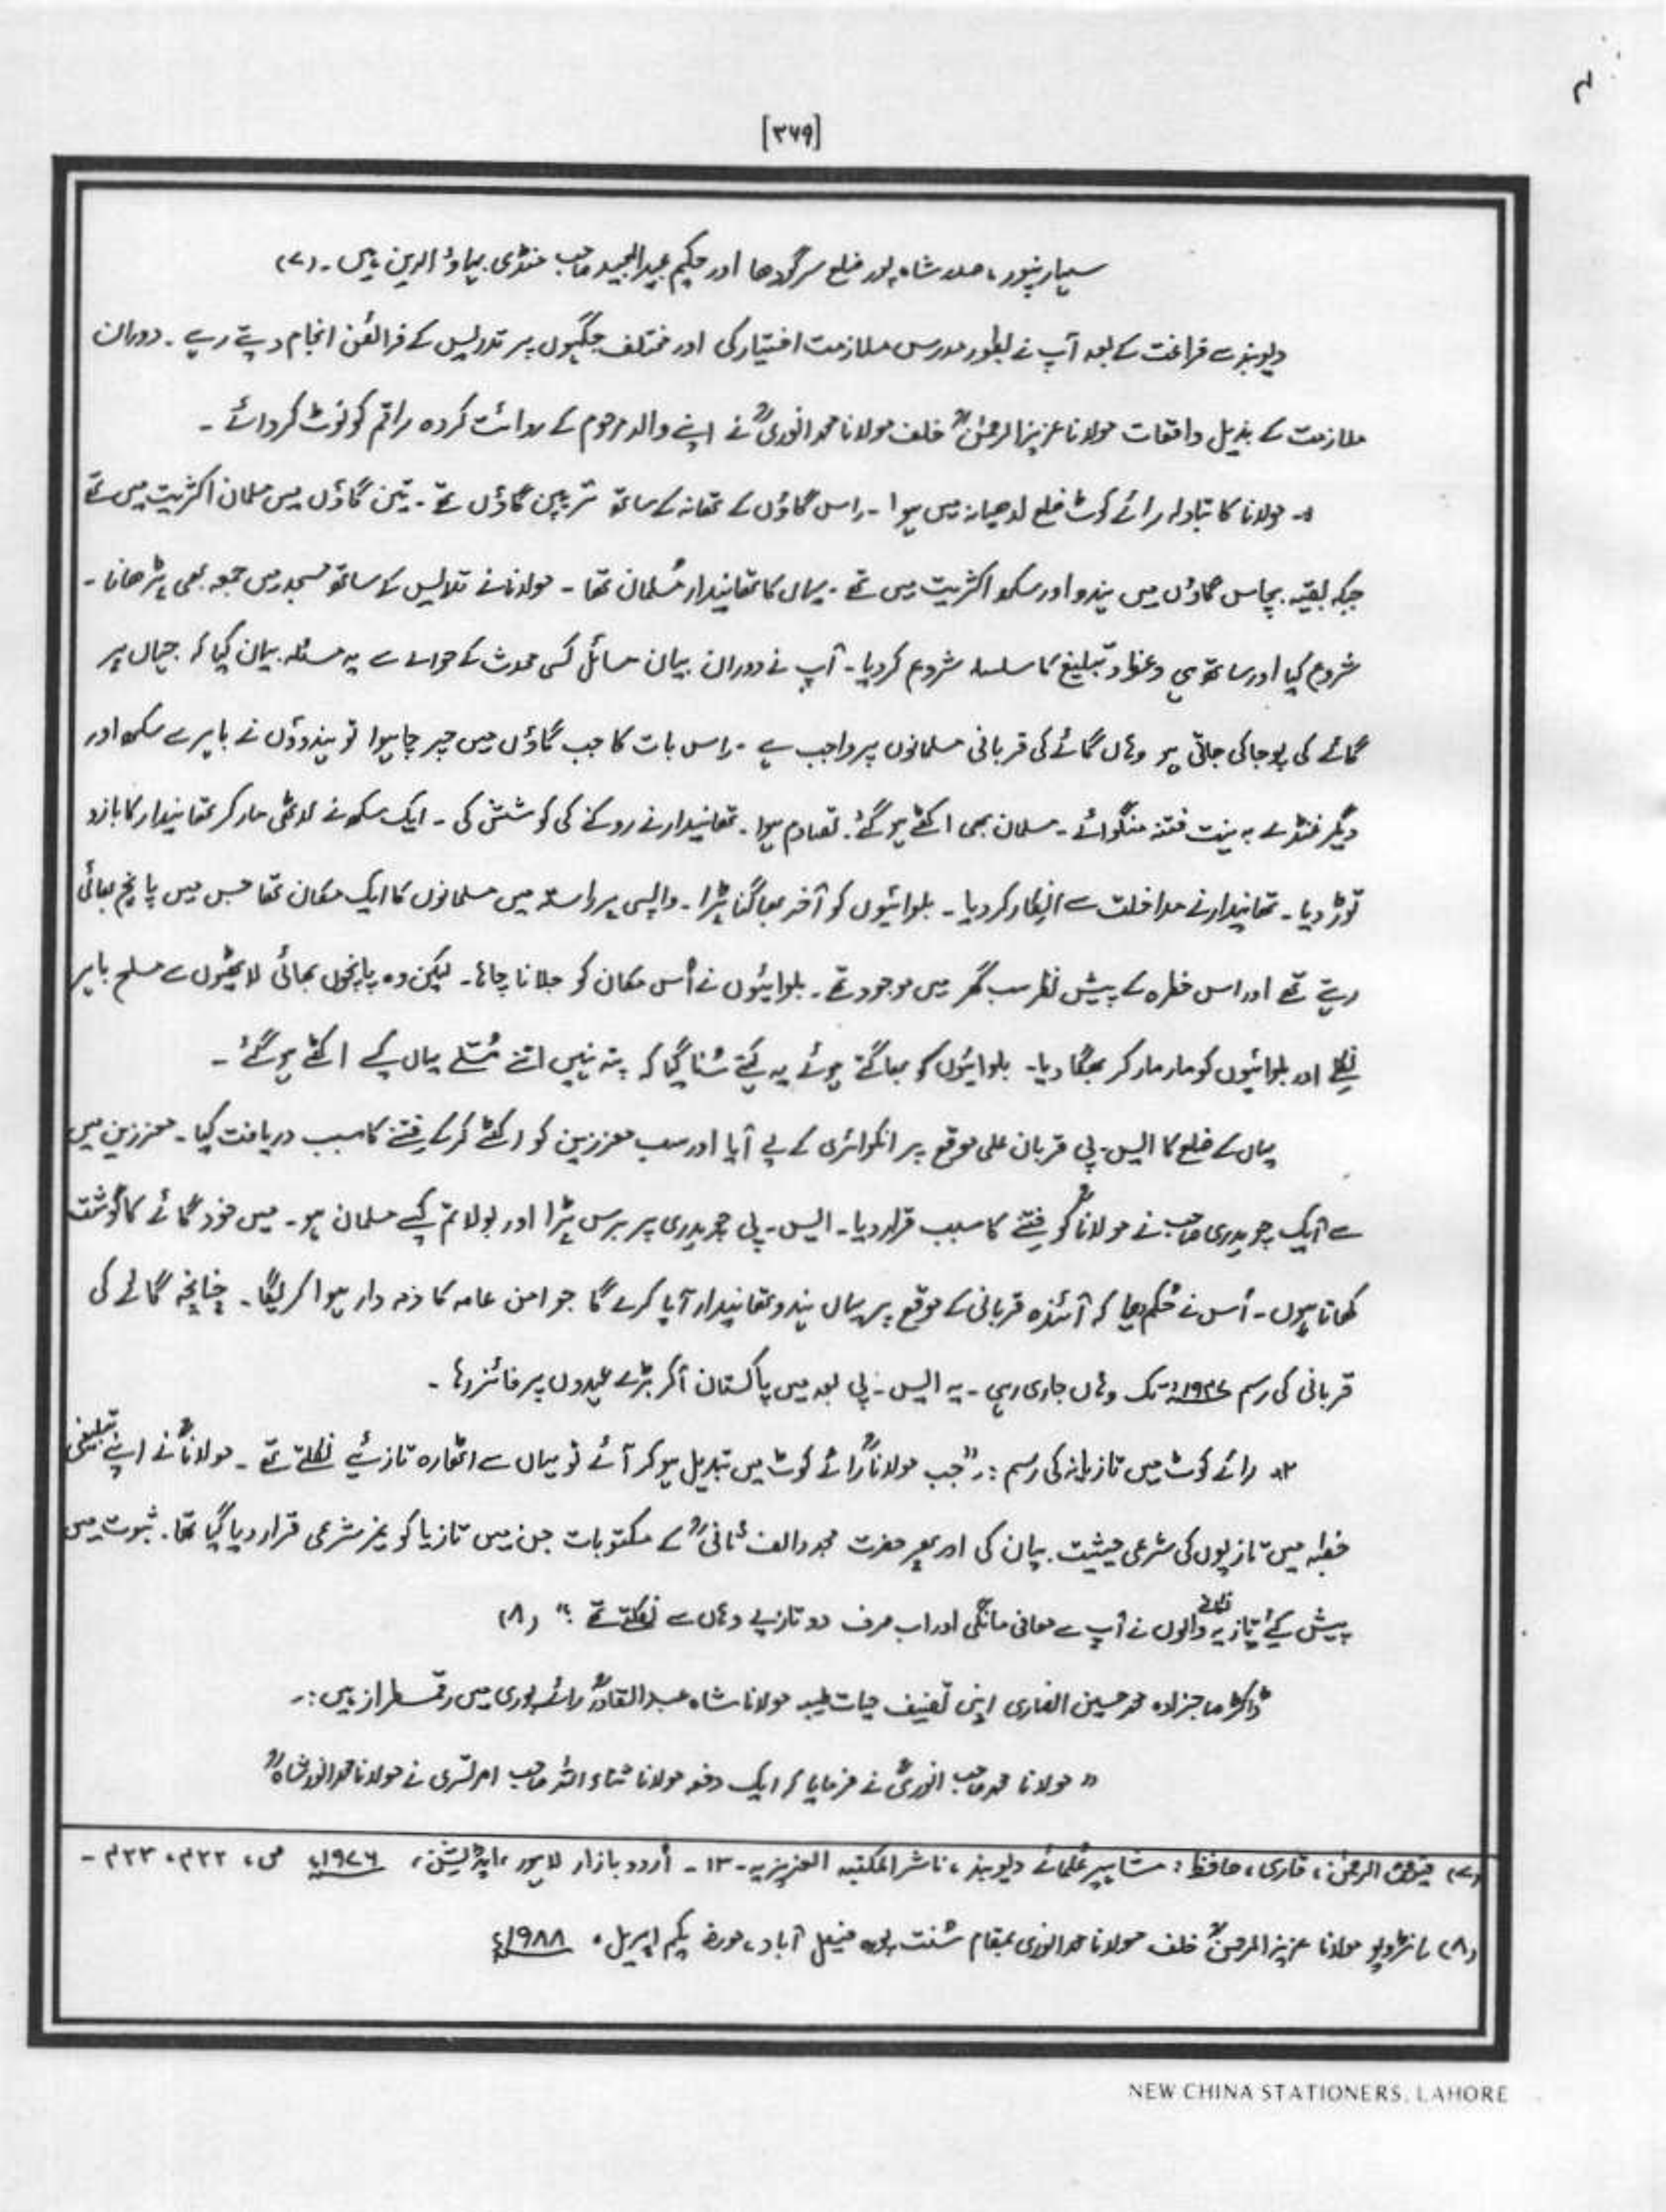 [۳۶۹]
سہارنپور، صدر شاہ پور ضلع سرگودھا اور حکیم عبدالمجید صاحب منڈی بہاؤ الدین ہیں۔ (۷)
دیوبند سے فراغت کے بعد آپ نے بطور مدرس ملازمت اختیار کی اور مختلف جگہوں پر تدریس کے فرائض انجام دیتے رہے۔ دوران
ملازمت کے بذیل واقعات مولانا عزیز الرحمٰنؒ خلف مولانا محمد انوریؒ نے اپنے والد مرحوم کے روائت کردہ راقم کو نوٹ کروائے۔
۱۔ مولانا کا تبادلہ رائے کوٹ ضلع لدھیانہ میں ہوا۔ اس گاؤں کے تھانہ کے ساتھ ترپین گاؤں تھے۔ تین گاؤں میں مسلمان اکثریت میں تھے
جبکہ بقیہ پچاس گاؤں میں ہندو اور سکھ اکثریت میں تھے۔ یہاں کا تھانیدار مُسلمان تھا۔ مولانا نے تدریس کے ساتھ مسجد میں جمعہ بھی پڑھانا۔
شروع کیا اور ساتھ ہی وعظ و تبلیغ کا سلسلہ شروع کر دیا۔ آپ نے دوران بیان مسائل کسی محدث کے حوالے سے یہ مسئلہ بیان کیا کہ جہاں پر
گائے کی پوجا کی جاتی ہو وہاں گائے کی قربانی مسلمانوں پر واجب ہے۔ اس بات کا جب گاؤں میں چرچا ہوا تو ہندوؤں نے باہر سے سکھ اور
دیگر غنڈے بہ نیت فتنہ منگوائے۔ مسلمان بھی اکٹھے ہو گئے۔ تصادم ہوا۔ تھانیدار نے روکنے کی کوشش کی۔ ایک سکھ نے لاٹھی مار کر تھانیدار کا بازو
توڑ دیا۔ تھانیدار نے مداخلت سے انکار کر دیا۔ بلوائیوں کو آخر بھاگنا پڑا۔ واپسی پر راستہ میں مسلمانوں کا ایک مکان تھا جس میں پانچ بھائی
رہتے تھے اور اس خطرہ کے پیش نظر سب گھر میں موجود تھے۔ بلوائیوں نے اُس مکان کو جلانا چاہا۔ لیکن وہ پانچوں بھائی لاٹھیوں سے مسلح باہر
نکلے اور بلوائیوں کو مار مار کر بھگا دیا۔ بلوائیوں کو بھاگتے ہوئے یہ کہتے سُنا گیا کہ پتہ نہیں اتنے مُسلے یہاں کیسے اکٹھے ہو گئے۔
یہاں کے ضلع کا ایس۔پی قربان علی موقع پر انکوائری کے لیے آیا اور سب معززین کو اکٹھے کر کے فتنے کا سبب دریافت کیا۔ معززین میں
سے ایک چوہدری صاحب نے مولاناؒ کو فتنے کا سبب قرار دیا۔ ایس۔پی چوہدری پر برس پڑا اور بولا تم کیسے مسلمان ہو۔ میں خود گائے کا گوشت
کھاتا ہوں۔ اُس نے حُکم دیا کہ آئندہ قربانی کے موقع پر یہاں ہندو تھانیدار آیا کرے گا جو امن عامہ کا ذمہ دار ہوا کریگا۔ چنانچہ گائے کی
قربانی کی رسم ۱۹۴۷ء تک وہاں جاری رہی۔ یہ ایس۔پی بعد میں پاکستان آ کر بڑے عہدوں پر فائز رہا۔
۲۔ رائے کوٹ میں تازیانہ کی رسم:۔ "جب مولاناؒ رائے کوٹ میں تبدیل ہو کر آئے تو یہاں سے اٹھارہ تازئیے نکلتے تھے۔ مولاناؒ نے اپنے تبلیغی
خطبہ میں تازیوں کی شرعی حیثیت بیان کی اور پھر حضرت مجدد الف ثانیؒ کے مکتوبات جن میں تازیا کو غیر شرعی قرار دیا گیا تھا۔ ثبوت میں
پیش کیے تازیہ نکالنے والوں نے آپ سے معافی مانگی اور اب صرف دو تازیے وہاں سے نکلتے تھے؛" (۸)
ڈاکٹر صاحبزادہ محمد حسین انصاری اپنی تصنیف حیات طیبہ مولانا شاہ عبدالقادرؒ رائے پوری میں رقمطراز ہیں:۔
"مولانا محمد صاحب انوریؒ نے فرمایا کہ ایک دفعہ مولانا ثناء اللہ صاحب امرتسری نے مولانا محمد انور شاہؒ
(۷) فیوض الرحمٰن، قاری، حافظ: مشاہیر عُلمائے دیوبند، ناشر المکتبہ العزیزیہ۔ ۱۳۔ اُردو بازار لاہور، ایڈیشن، ۱۹۷۶ء ص، ۴۲۲، ۴۲۳۔
(۸) انٹرویو مولانا عزیز الرحمٰنؒ خلف مولانا محمد انوری بمقام سُنت پورہ فیصل آباد، مورخہ یکم اپریل، ۱۹۸۸ء
NEW CHINA STATIONERS, LAHORE